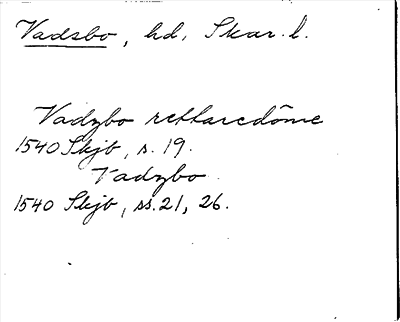 Vadsbo, hd, Skar. l.
Vadzbo rettaredöme
1540 Skjb, s. 19.
Vadzbo
1540 Skjb, ss. 21, 26.